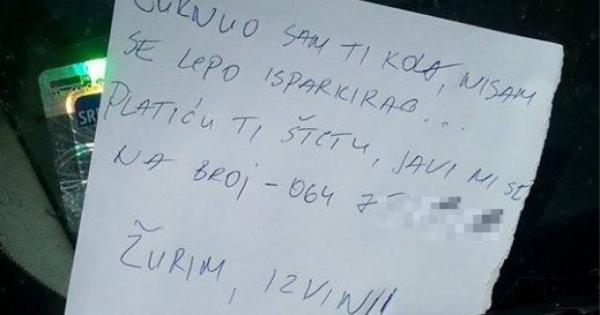 ĆURNUO SAM TI KOLA, NISAM
SE LEPO ISPARKIRAO...
PLATIĆU TI ŠTETU, JAVI MI SE
NA BROJ - 064 7
ŽURIM, IZVINI!
SR